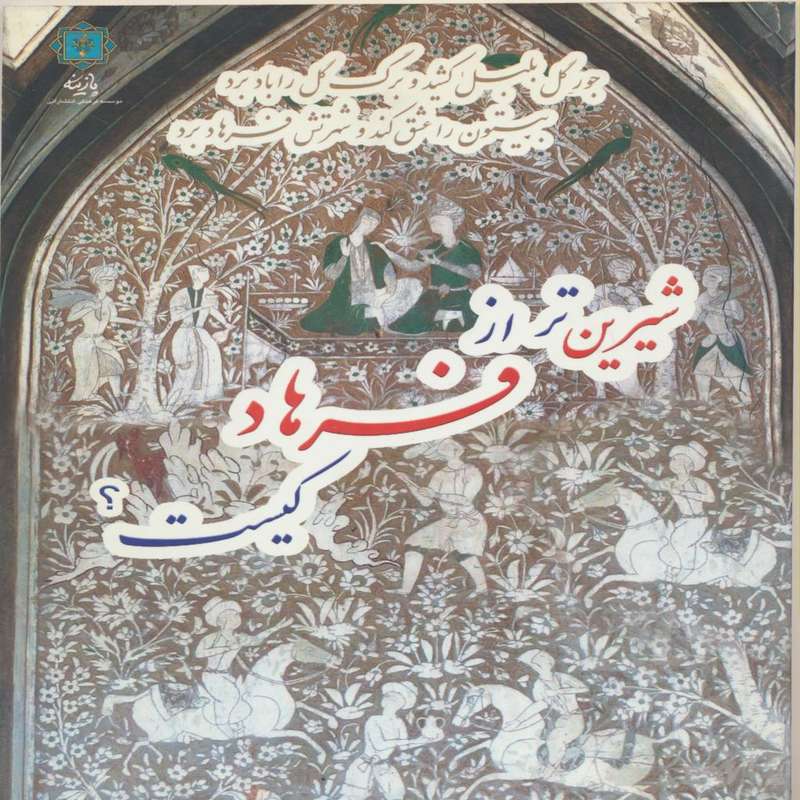 پازینه
موسسه فرهنگی انتشاراتی
جور گل بلبل کشید و برگ گل را باد برد
بیستون را عشق کند و شهرتش فرهاد برد
شیرین تر از
فرهاد
کیست؟